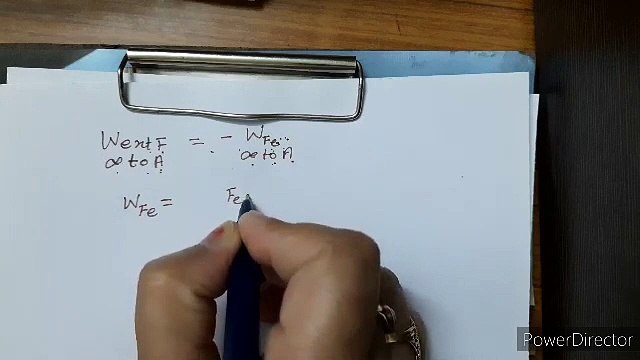 Wext F = - WFe
∞ to A ∞ to A
WFe = Fe
PowerDirector